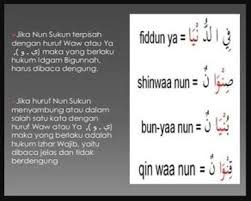 Jika Nun Sukun terpisah
dengan huruf Waw atau Ya
(ي - و), maka yang berlaku
hukum Idgam Bigunnah,
harus dibaca dengung.
Jika huruf Nun Sukun
menyambung atau dalam
salah satu kata dengan
huruf Waw atau Ya
(ي - و), maka yang berlaku
adalah hukum
Izhar Wajib, yaitu
dibaca jelas dan tidak
berdengung
fiddun ya = فِي الدُّنْيَا
shinwaa nun = صِنْوَانٌ
bun-yaa nun = بُنْيَانٌ
qin waa nun = قِنْوَانٌ